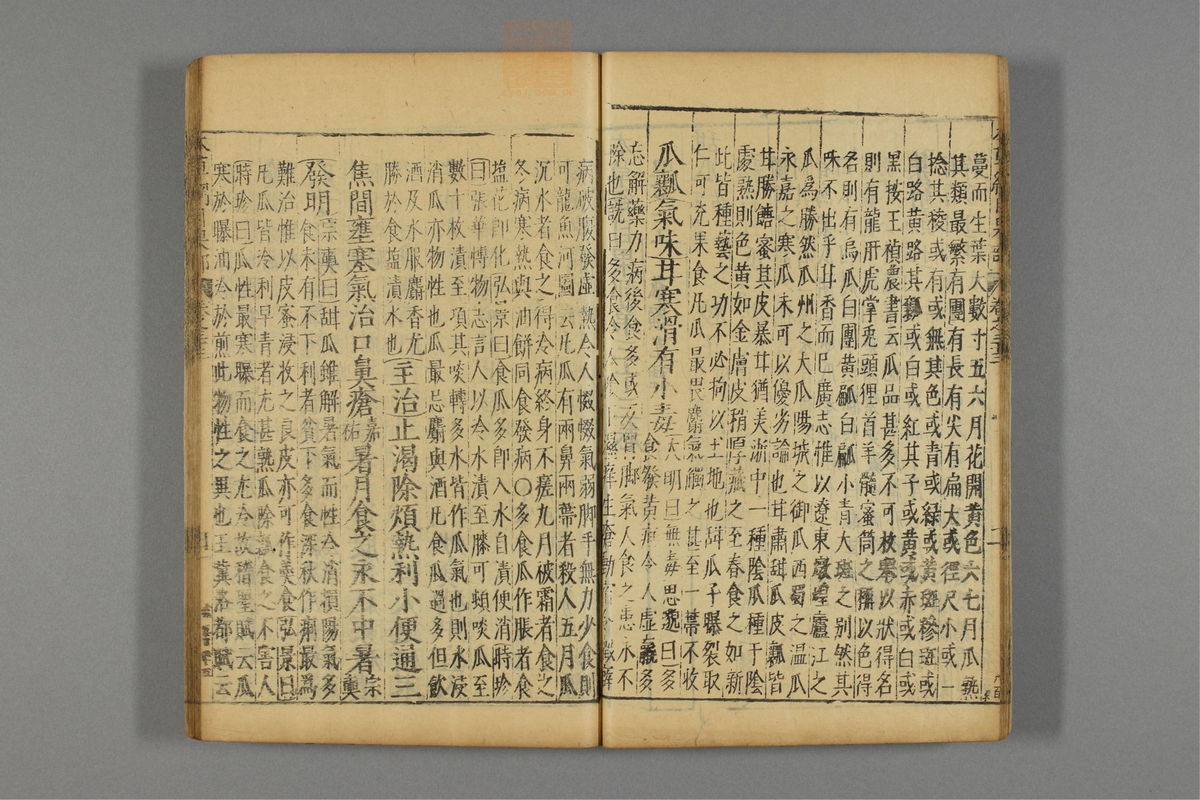 蔓而生葉大數寸五六月花開黃色六七月瓜熟
其類最繁有團有長有尖有扁大或徑尺小或一
捻其稜或有或無其色或青或綠或黃斑糝斑或
白路黃路其瓤或白或紅其子或黃或赤或白或
黑按王禎農書云瓜品甚多不可枚舉以狀得名
則有龍肝虎掌兎頭狸首羊髓蜜筒之稱以色得
名則有烏瓜白團黃㼎白㼎小青大斑之别然其
味不出乎甘香而已廣志惟以遼東燉煌廬江之
瓜為勝然瓜州之大瓜陽城之御瓜西蜀之温瓜
永嘉之寒瓜未可以優劣論也甘肅甜瓜皮瓤皆
甘勝餹蜜其皮暴甘猶美浙中一種陰瓜種于陰
處熟則色黃如金膚皮稍厚藏之至春食之如新
此皆種藝之功不必拘以土地也甜瓜子曝裂取
仁可充果食凡瓜最畏麝氣觸之甚至一蒂不收
瓜瓤氣味甘寒滑有小毒大明曰無毒思邈曰多
食發黃疸令人虛羸多
忘解藥力病後食多或反胃脚氣人食之患永不
除也詵曰多食令人陰下濕痒生瘡動宿冷癥癖
病破腹發虛熱令人惙惙氣弱脚手無力少食則
可龍魚河圖云凡瓜有兩鼻兩蒂者殺人五月瓜
沉水者食之得冷病終身不瘥九月被霜者食之
冬病寒熱與油餅同食發病○多食瓜作脹者食
鹽花即化弘景曰食瓜多即入水自漬便消時珍
曰張華博物志言人以冷水漬至膝可頓啖瓜至
數十枚漬至項其啖轉多水皆作瓜氣也則水浸
消瓜亦物性也瓜最忌麝與酒凡食瓜過多但飲
酒及水服麝香尤
勝於食鹽漬水也主治止渴除煩熱利小便通三
焦間壅塞氣治口鼻瘡嘉祐暑月食之永不中暑宗奭
發明宗奭曰甜瓜雖解暑氣而性冷消損陽氣多
食未有不下利者貧下多食深秋作痢最為
難治惟以皮蜜浸收之良皮亦可作羹食弘景曰
凡瓜皆冷利早青者尤甚熟瓜除瓤食之不害人
時珍曰瓜性最寒曝而食之尤冷故稽聖賦云瓜
寒於曝油冷於煎此物性之異也王冀洛都賦云